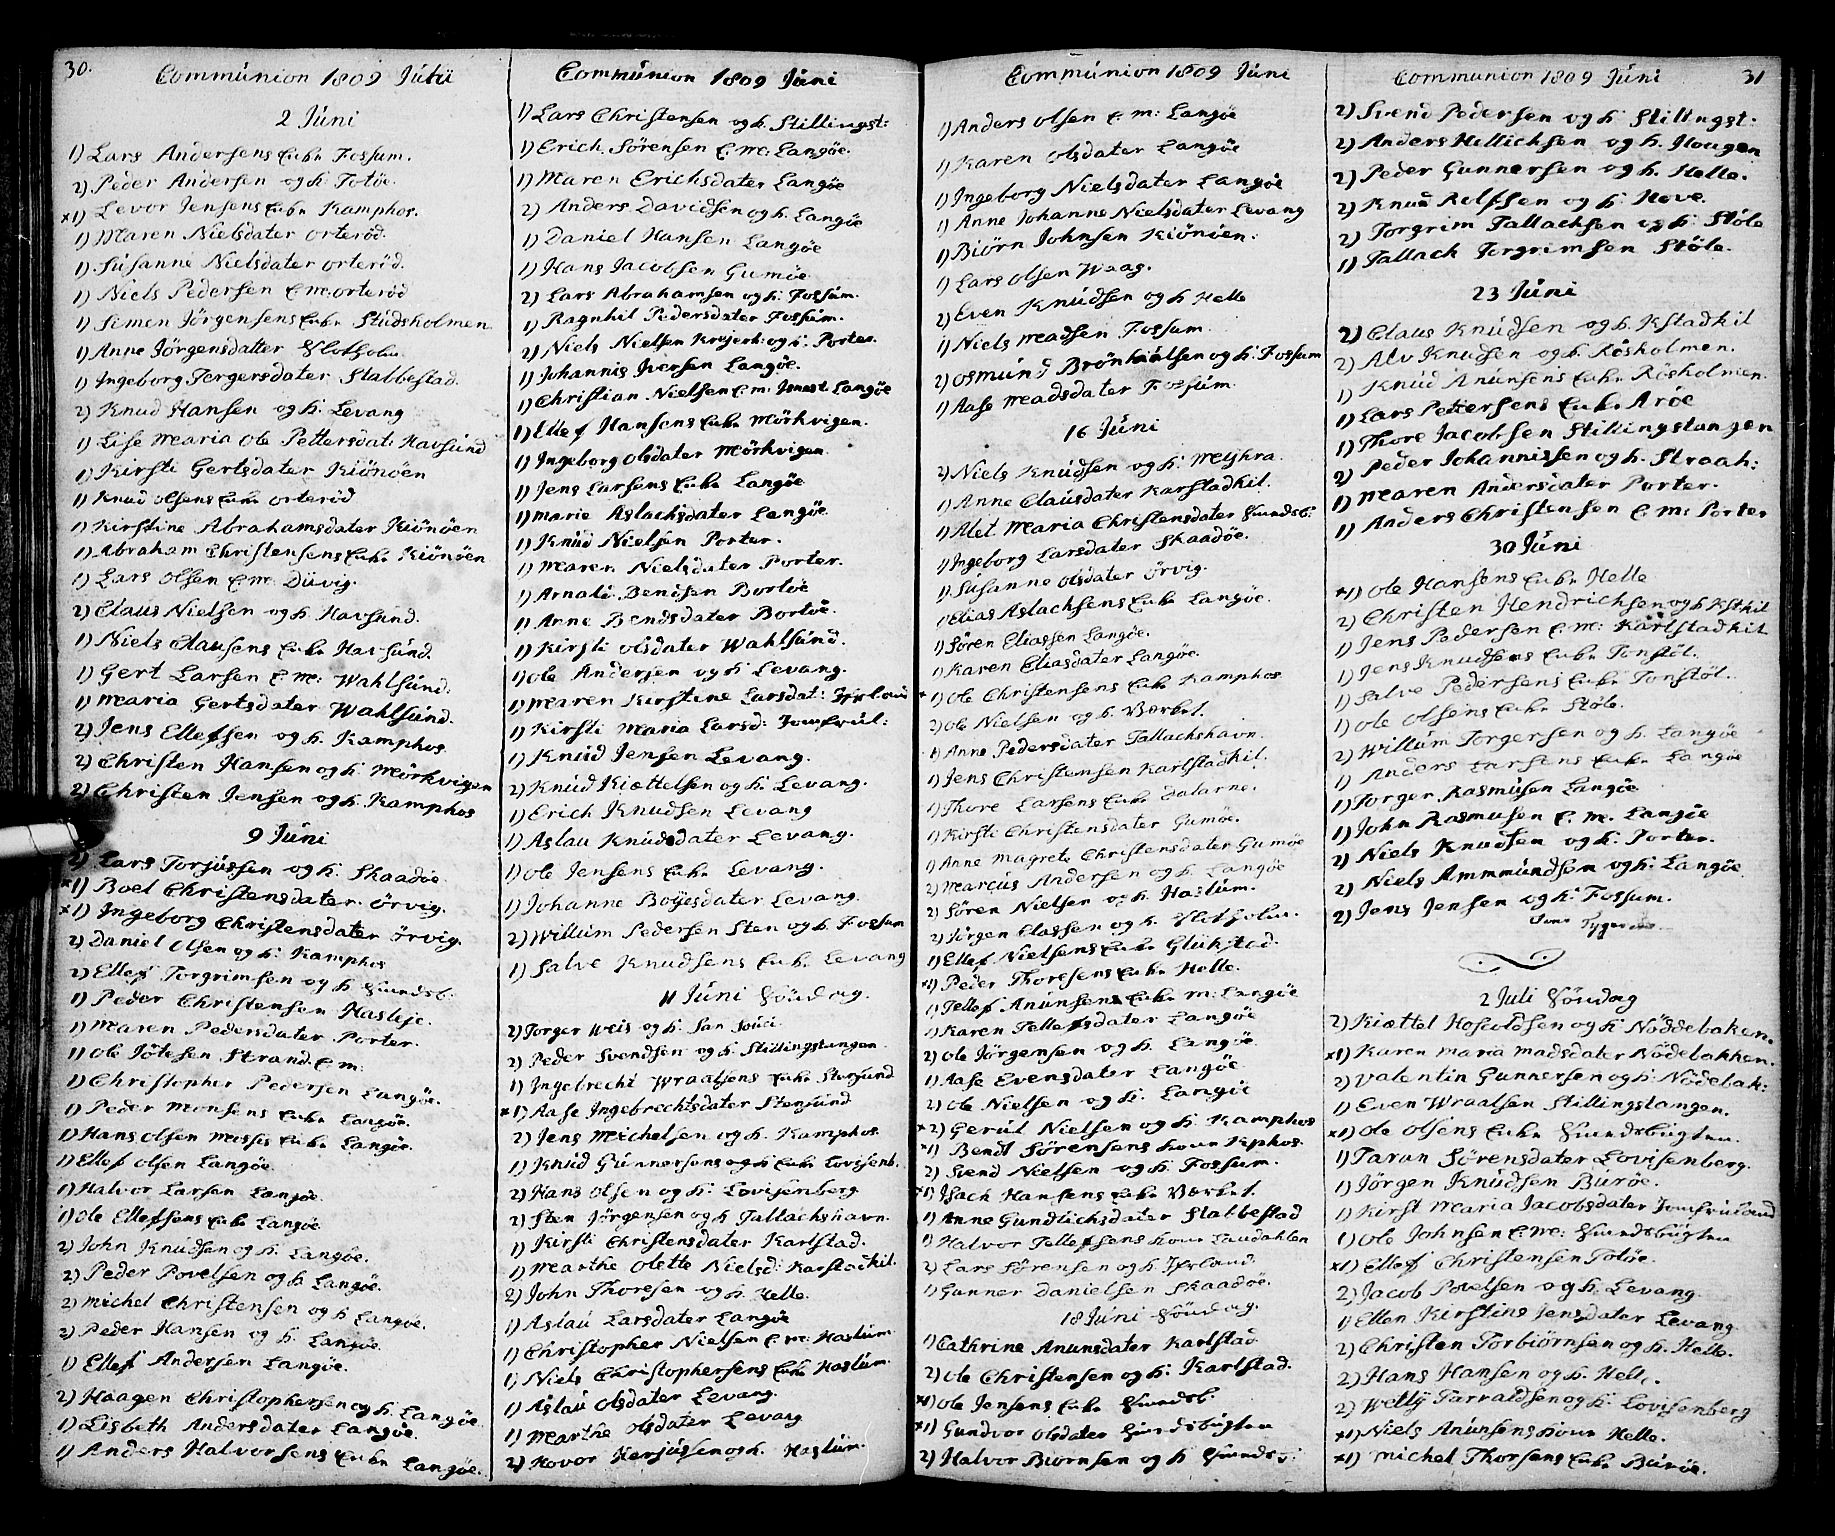 30.
Communion 1809 Juni
2 Juni
1) Lars Andersens Enke Fossum.
2) Peder Andersen og h: Totøe.
x1) Levor Jensens Enke Kamphos.
1) Maren Nielsdater Orterød.
1) Susanne Nielsdater Orterød.
1) Niels Pedersen E. M: Orterød
1) Simen Jörgensens Enke Studsholmen
1) Anne Jörgensdatter Slotholm.
1) Ingeborg Torgersdater Stabbestad.
2) Knud Hansen og h: Levang
1) Lise Maria Ole Pettersdat: Havsund
1) Kirsti Gertsdater Kiönöen
1) Knud Olsens Enke Orterød
1) Kirstine Abrahamsdater Kiönöen
1) Abraham Christensens Enke Kiönöen
1) Lars Olsen E. M: Duvig.
2) Claus Nielsen og h: Havsund.
1) Niels Clausens Enke Havsund.
1) Gert Larsen E. M: Wahlsund.
1) Maria Gertsdater Wahlsund.
2) Jens Ellefsen og h. Kamphos.
2) Christen Hansen og h: Mörkvigen
2) Christen Jensen og h. Kamphos
9 Juni
2) Lars Torjussen og h: Skaadøe.
x1) Boel Christensdater Örvig.
x1) Ingeborg Christensdater Örvig.
2) Daniel Olsen og h: Kamphos
2) Ellef Torgrimsen og h
1) Peder Christensen
1) Maren Pedersdater Porter.
1) Ole Strand. E. M:
1) Christopher Pedersen Langøe.
1) Peder Monsens Enke Langøe.
1) Hans Olsen Enke Langøe.
1) Ellef Olsen Langøe
1) Halvor Larsen Langøe.
1) Ole Ellefsens Enke Langøe
2) John Knudsen og h. Langøe.
2) Peder Povelsen og h Langøe.
2) Michel Christensen og h Langøe.
2) Peder Hansen og h. Langøe.
1) Ellef Andersen Langøe.
2) Haagen Christophersen og h: Langøe
1) Lisbeth Andersdater Langøe.
1) Anders Halvorsens Enke Langøe.
Communion 1809 Juni
1) Lars Christensen og h. Stillingst:
1) Erich Sörensen E. M: Langøe.
1) Maren Erichsdater Langøe
2) Anders Davidsen og h. Langøe
1) Daniel Hansen Langøe
1) Hans Jacobsen Gumøe.
2) Lars Abrahamsen og h: Fossum.
1) Ragnhil Pedersdater Fossum.
2) Niels Nielsen og h: Porter.
1) Johannis Iversen Langøe.
1) Christian Nielsen E. M: Langøe
1) Ellef Hansens Enke Mörkvigen.
1) Ingeborg Olsdater Mörkvigen
1) Jens Larsens Enke Langøe
1) Marie Aslachsdater Langøe
1) Knud Nielsen Porter.
1) Maren Nielsdater Porter.
1) Bendsen Bortøe
1) Anne Bendsdater Bortøe.
1) Kirsti Olsdater Wahlsund.
1) Ole Andersen og h Levang.
1) Maren Kirstine Larsdat:
1) Kirsti Maria Larsd: Jomfrul:
1) Knud Jensen Levang.
2) Knud Kiættelsen og h: Levang.
1) Erich Knudsen Levang
1) Aslau Knudsdater Levang.
1) Ole Jensens Enke Levang.
1) Johanne Boyesdater Levang.
2) Willum Pedersen Sten og h. Fossum
1) Salve Knudsens Enke Levang
11 Juni Söndag.
2) Torger Weis og h. San Souci.
2) Peder Svendsen og h. Stillingstangen.
1) Ingebrecht Wraalsens Enke Stensund
x1) Aase Ingebrechtsdater Stensund
2) Jens Michelsen og h. Kamphos
1) Knud Gunnersens Enke Lovisenb.
2) Hans Olsen og h: Lovisenberg
2) Sten Jörgensen og h Tallachshavn.
1) Kirsti Christensdater Karlstad.
1) Marthe Olette Nielsd: Karstadkil.
2) John Thoresen og h. Helle.
1) Aslau Larsdater Langøe
1) Christopher Nielsen E. M: Haslum
1) Niels Christophersens Enke Haslum
1) Aslau Olsdater Levang.
1) Marthe Olsdater Levang
2) Hovor Herjussen og h. Haslum.
Communion 1809 Juni
1) Anders Olsen E. M: Langøe
1) Karen Olsdater Langøe
1) Ingeborg Nielsdater Langøe
1) Anne Johanne Nielsdater Levang
1) Biörn Johnsen Kiönöen:
1) Lars Olsen Waag.
2) Even Knudsen og h Helle
1) Niels Madsen Fossum.
2) Osmund og h: Fossum
1) Aase Madsdater Fossum.
16 Juni
2) Niels Knudsen og h.
1) Anne Clausdater Karstadkil.
1) Alet Maria Christensdater
1) Ingeborg Larsdater Skaadøe.
1) Susanne Olsdater Örvig.
1) Elias Aslachsens Enke Langøe.
1) Sören Eliassen Langøe.
1) Karen Eliasdater Langøe.
x1) Ole Christensens Enke Kamphos
2) Ole Nielsen og h. Værket.
1) Anne Pedersdater Tallachshavn.
1) Jens Christensen Karlstadkil.
1) Thore Larsens Enke Dalarne.
1) Kirsti Christensdater Gumøe.
1) Anne Magrete Christensdater Gumøe
2) Marcus Andersen og h. Langøe
2) Sören Nielsen og h. Haslum.
2) Jörgen Classen og h. Slotholm.
1) Ellef Nielsens Enke Glükstad.
x1) Peder Thoresens Enke Helle.
1) Tellef Anunsens Enke M: Langøe
1) Karen Tellefsdater Langøe
2) Ole Jörgensen og h. Langøe.
1) Aase Evensdater Langøe
2) Ole Nielsen og h. Langøe
x2) Gerul Nielsen og h. Kamphos
x1) Bendt Sörensens Kone Kphos.
2) Svend Nielsen og h: Fossum.
x1) Isach Hansens Enke Værket.
1) Anne Gundlichsdater Stabbestad
1) Halvor Tellefsens Kone Laudahlen
2) Lars Sörensen og h.
1) Gunner Danielsen Skaadøe.
18 Juni Söndag.
1) Cathrine Anunsdater Karlstad
2) Ole Christensen og h. Karlstad.
x1) Ole Jensens Enke
x1) Gundvor Olsdater
2) Halvor Biörnsen og h
Communion 1809 Juni
31
2) Svend Pedersen og h Stillingst.
2) Anders Hellichsen og h. Hougen
2) Peder Gunnersen og h. Helle.
2) Knud Rolfsen og h: Hove.
2) Torgrim Tallachsen og h: Stöle
1) Tallach Torgrimsen Stöle.
23 Juni
2) Claus Knudsen og h. Kstadkil
2) Alv Knudsen og h. Risholmen.
1) Knud Anunsens Enke Risholmen.
1) Lars Pettersens Enke Arøe
1) Thore Jacobsen Stillingstangen
2) Peder Johannissen og h. Straah:
1) Maren Andersdater Porter.
1) Anders Christensen E. M: Porter
30 Juni
x1) Ole Hansens Enke Helle
2) Christen Hendrichsen og h Kstkil
1) Jens Pedersen E. M: Karlstadkil
1) Jens Knudsens Enke Tonstöl.
1) Salve Pedersens Enke Tonstöl.
1) Ole Olsens Enke Stöle.
2) Willum Torgersen og h. Langøe
1) Anders Larsens Enke Langøe
1) Torger Rasmusen Langøe
1) John Rasmusen E. M. Langøe
2) Niels Knudsen og h. Porter.
2) Niels Ammundsen og h: Langøe
2) Jens Jensen og h: Fossum.
2 Juli Söndag
2) Kiættel Hoscoldsen og h: Nöddebaken.
x1) Karen Maria Madsdater Nödebakken.
2) Valentin Gunnersen og h: Nödebak:
1) Even Wraalsen Stillingstangen.
x1) Ole Olsens Enke
1) Taran Sörensdater Lovisenberg.
1) Jörgen Knudsen Burøe.
1) Kirst Maria Jacobsdater Jomfruland
1) Ole Johnsen E. M:
x1) Ellef Christensen Totøe.
2) Jacob Povelsen og h. Levang.
1) Ellen Kirstine Jensdater Levang
2) Christen Torbiörnsen og h. Helle.
2) Hans Hansen og h. Helle.
2) Tarraldsen og h: Lovisenberg
x1) Niels Anunsens Kone Helle.
x1) Michel Thorsens Enke Burøe.